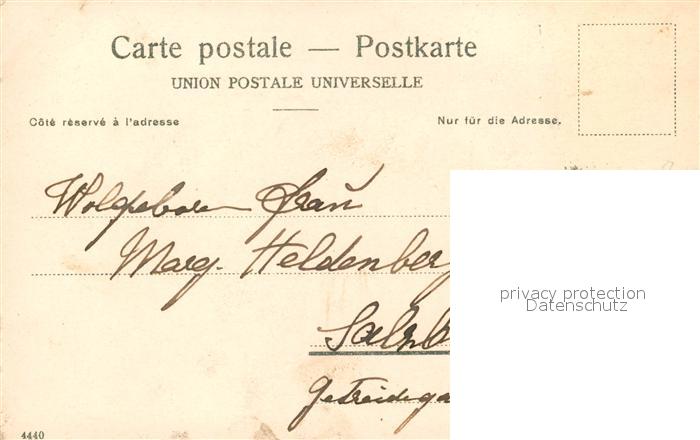 Carte postale — Postkarte
UNION POSTALE UNIVERSELLE
Côté réservé à l'adresse
Nur für die Adresse.
Wolgeboren Frau
Marg. Heldenberg
privacy protection
Datenschutz
Salzb
Getreidega
4440